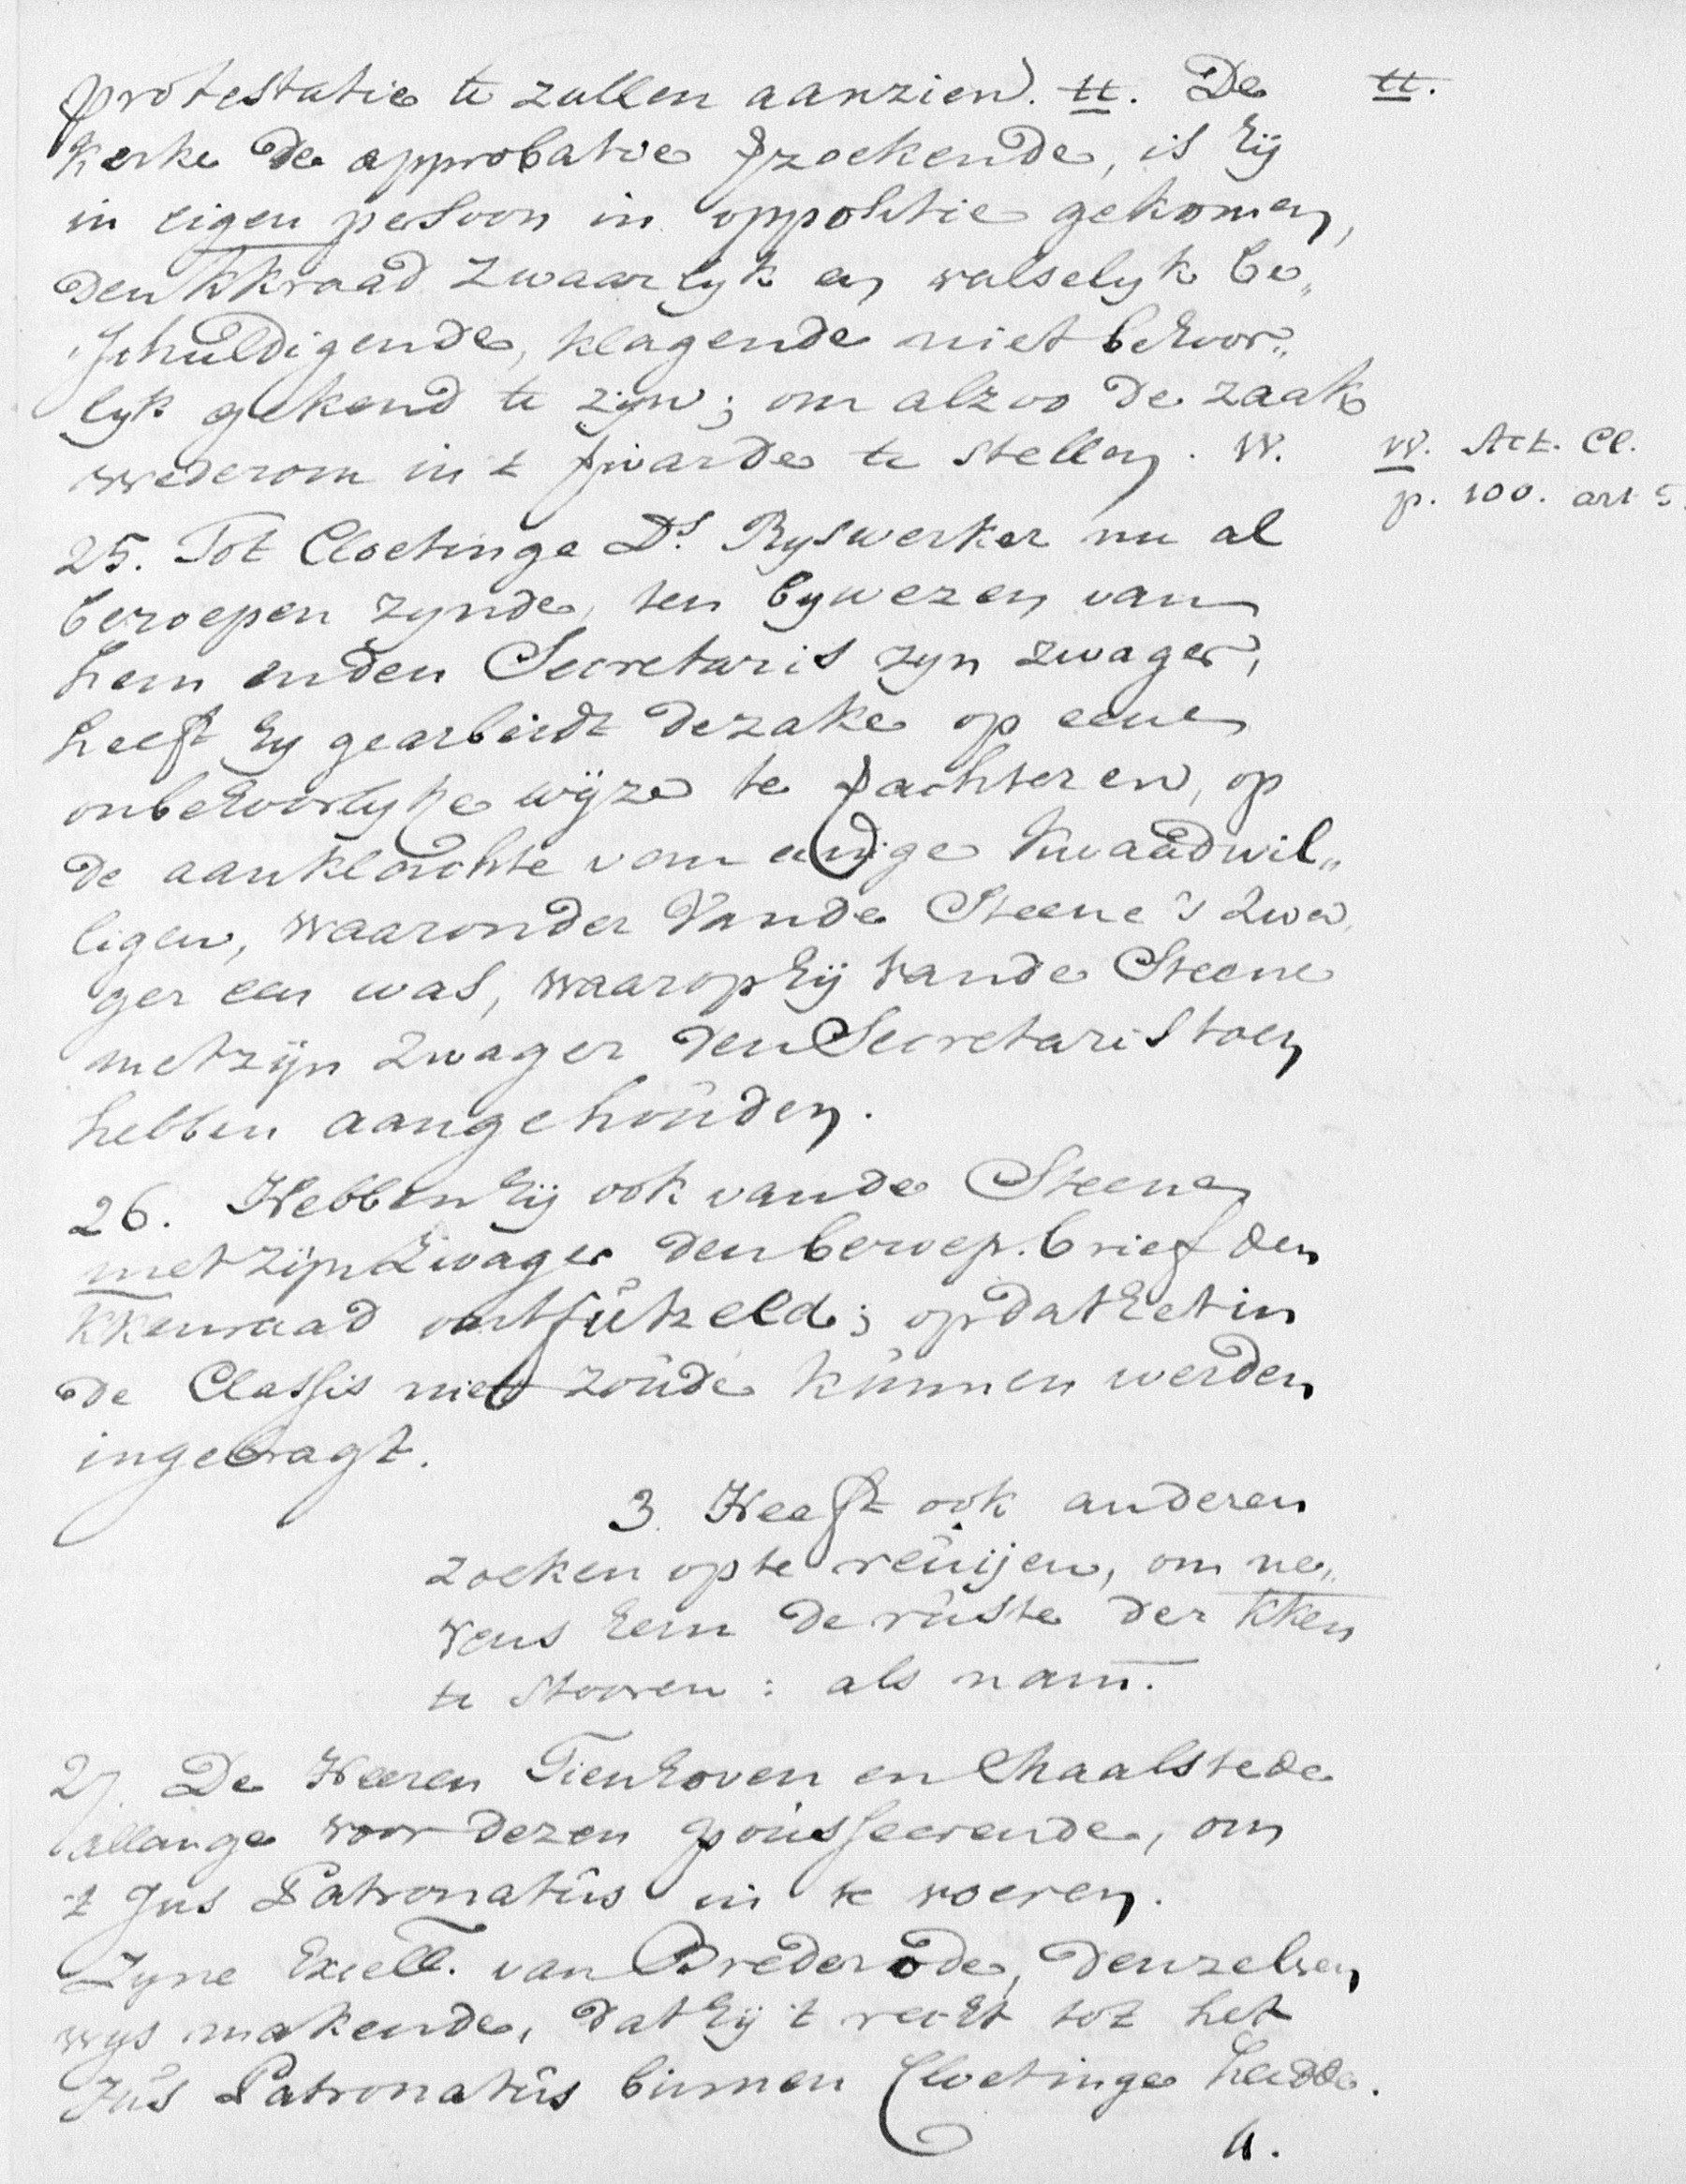 protestatie te zullen aanzien. tt. De tt.
Kerke de approbatie zoekende, is hij
in eigen persoon in oppositie gekomen,
den kkraad zwaarlyk en valselyk be„
schuldigende, klagende niet behoor„
lyk gekend te zijn; om alzoo de zaak
wederom in 't te stellen. W. W. Act. Cl.
p. 100. art 5.
25. Tot Cloetinge Ds. Ryswerker nu al
beroepen zynde, ten bywezen van
hem en den Secretaris zyn zwager,
heeft hy gearbeidt de zake op eene
onbehoorlyke wijze te achteren, op
de aanklachte van eenige kwaadwil„
ligen, waaronder Vande Steene's zwa„
ger een was, waarop hij vande Steene
met zijn zwager den Secretaris toen
hebben aangehouden.
26. Hebben hij ook vande Steene
met zijn zwager den beroep.brief den
kkenraad ontfutzeld; opdat het in
de Classis niet zoude kunnen werden
ingebragt.
3. Heeft ook anderen
zoeken op te reuijen, om ne„
vens hem de ruste der kken
te stooren: als nam.
27. De Heeren Tienhoven en Maalstede
allange voor dezen pousseerende, om
't Jus Patronatus in te voeren.
Zyne Excell. van Brederode, denzelven
wys makende, dat hij 't recht tot het
Jus Patronatus binnen Cloetinge hadde.
a.